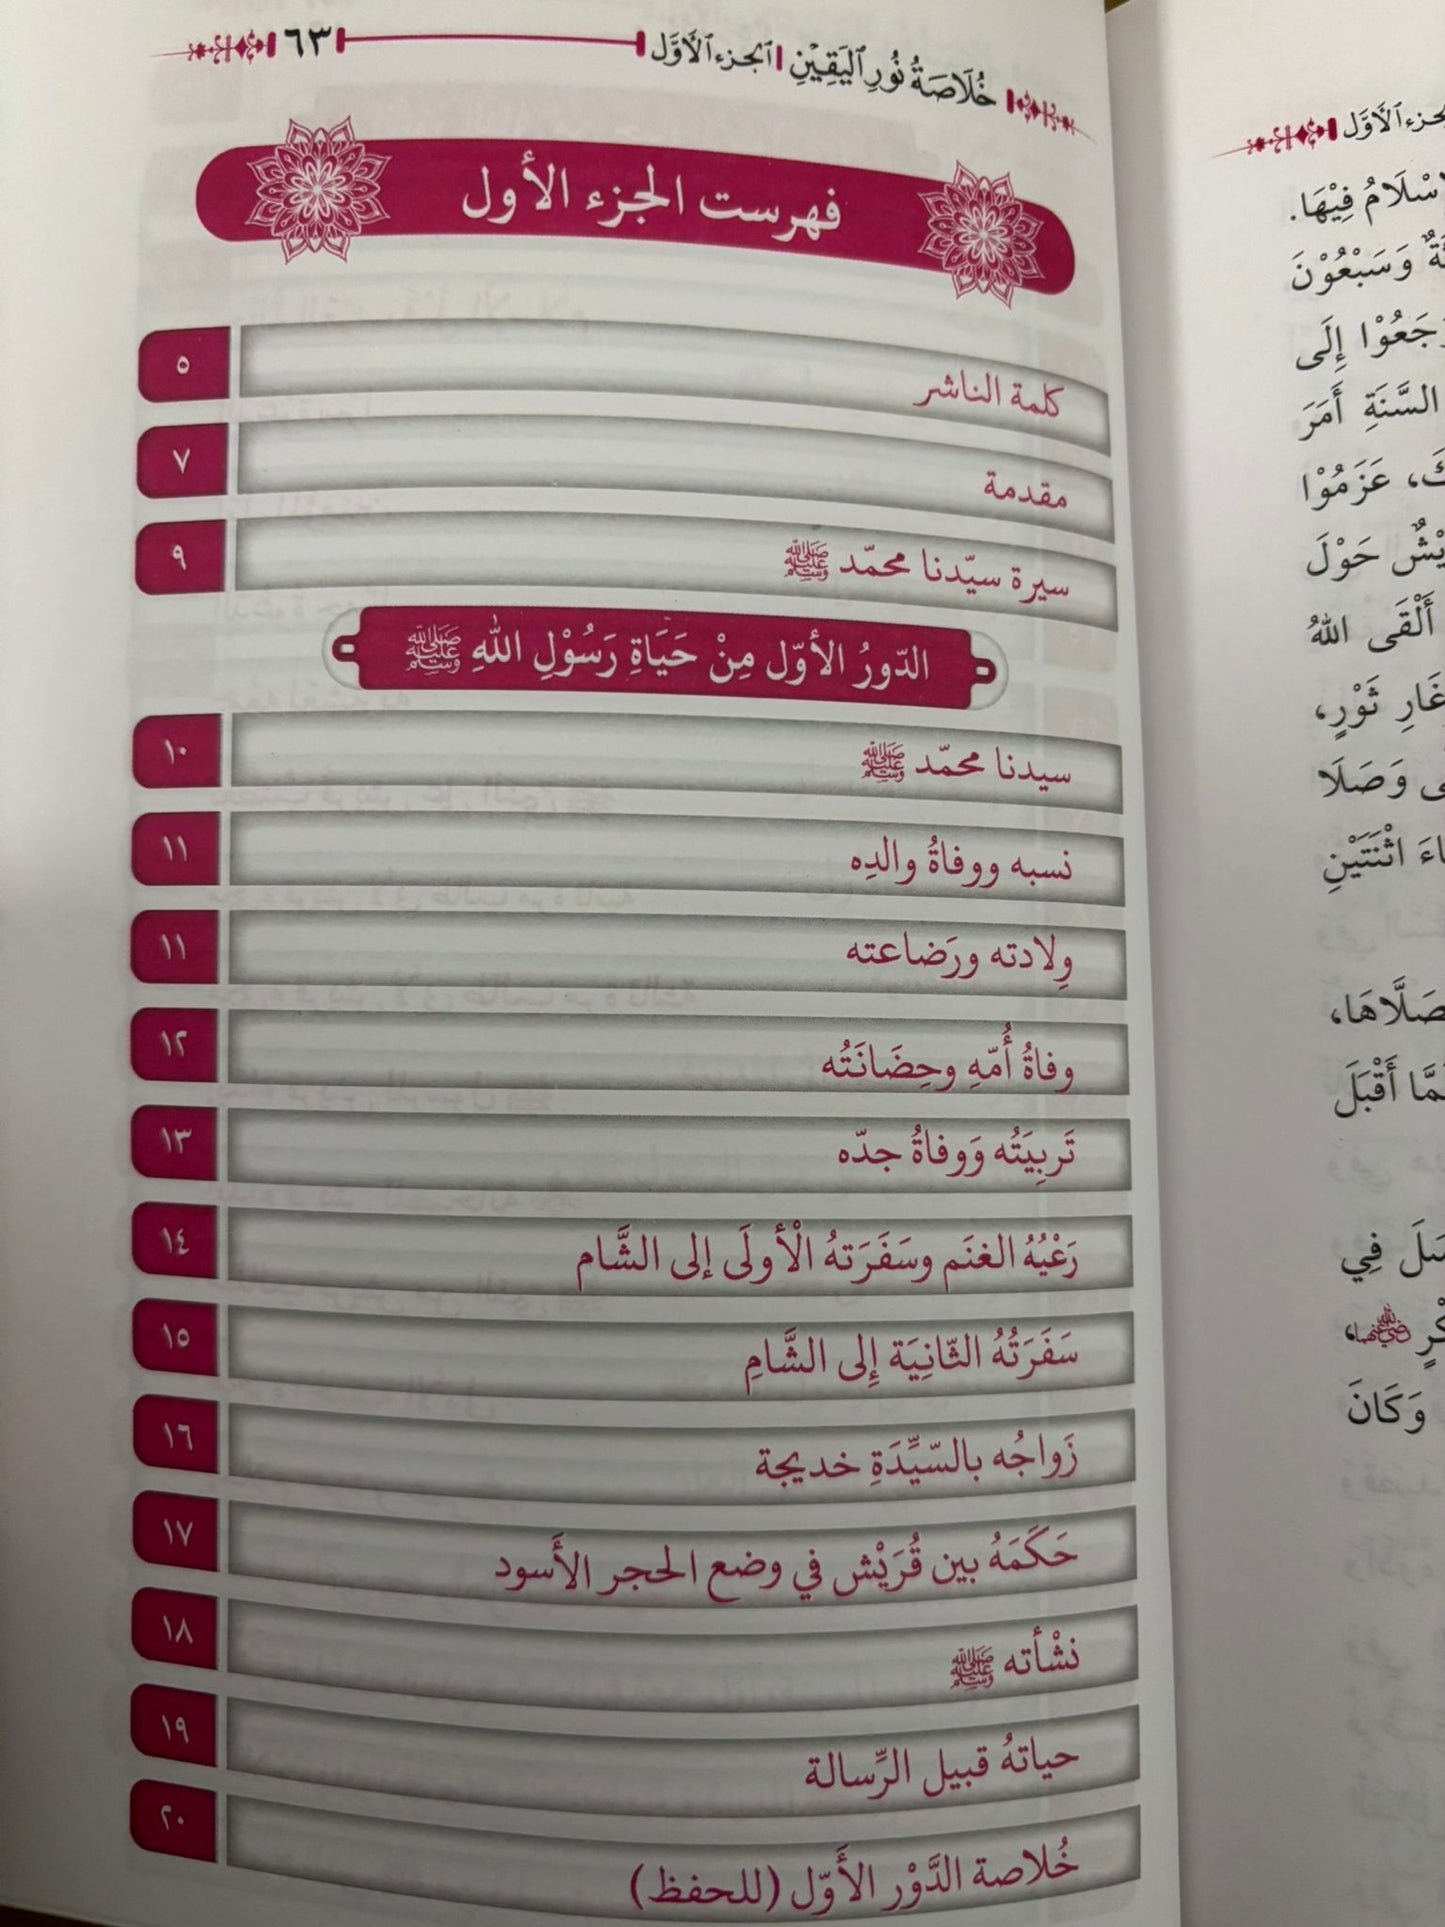 خُلَاصَةُ نُورِ ٱليَقِيْنِ | ٱلجزء ٱلأَوَّل ٦٣
فهرست الجزء الأول
كلمة الناشر ٥
مقدمة ٧
سيرة سيّدنا محمّد ﷺ ٩
الدّورُ الأوّل مِنْ حَيَاةِ رَسُوْلِ اللهِ ﷺ
سيدنا محمّد ﷺ ١٠
نسبه ووفاةُ والدِه ١١
وِلادته ورَضاعته ١١
وفاةُ أُمّهِ وحِضَانَتُه ١٢
تَربِيَتُه وَوفاةُ جدّه ١٣
رَعْيُهُ الغنَم وسَفَرَتهُ الْأولَى إلى الشَّام ١٤
سَفَرَتُهُ الثّانِيَة إِلى الشَّامِ ١٥
زَواجُه بالسّيِّدَةِ خديجة ١٦
حَكَمَهُ بين قُرَيْش في وضع الحجر الأَسود ١٧
نشْأته ﷺ ١٨
حياتهُ قبيل الرِّسالة ١٩
خُلاصة الدَّوْر الأَوّل (للحفظ) ٢٠
ٱلأَوَّل
فِيْهَا.
وَسَبْعُوْنَ
إِلَى
السَّنَةِ أَمَرَ
عَزَمُوْا
حَوْلَ
أَلْقَى اللهُ
غَارِ ثَوْرٍ،
وَصَلَا
اثْنَتَيْنِ
أَقْبَلَ
فِي
وَكَانَ